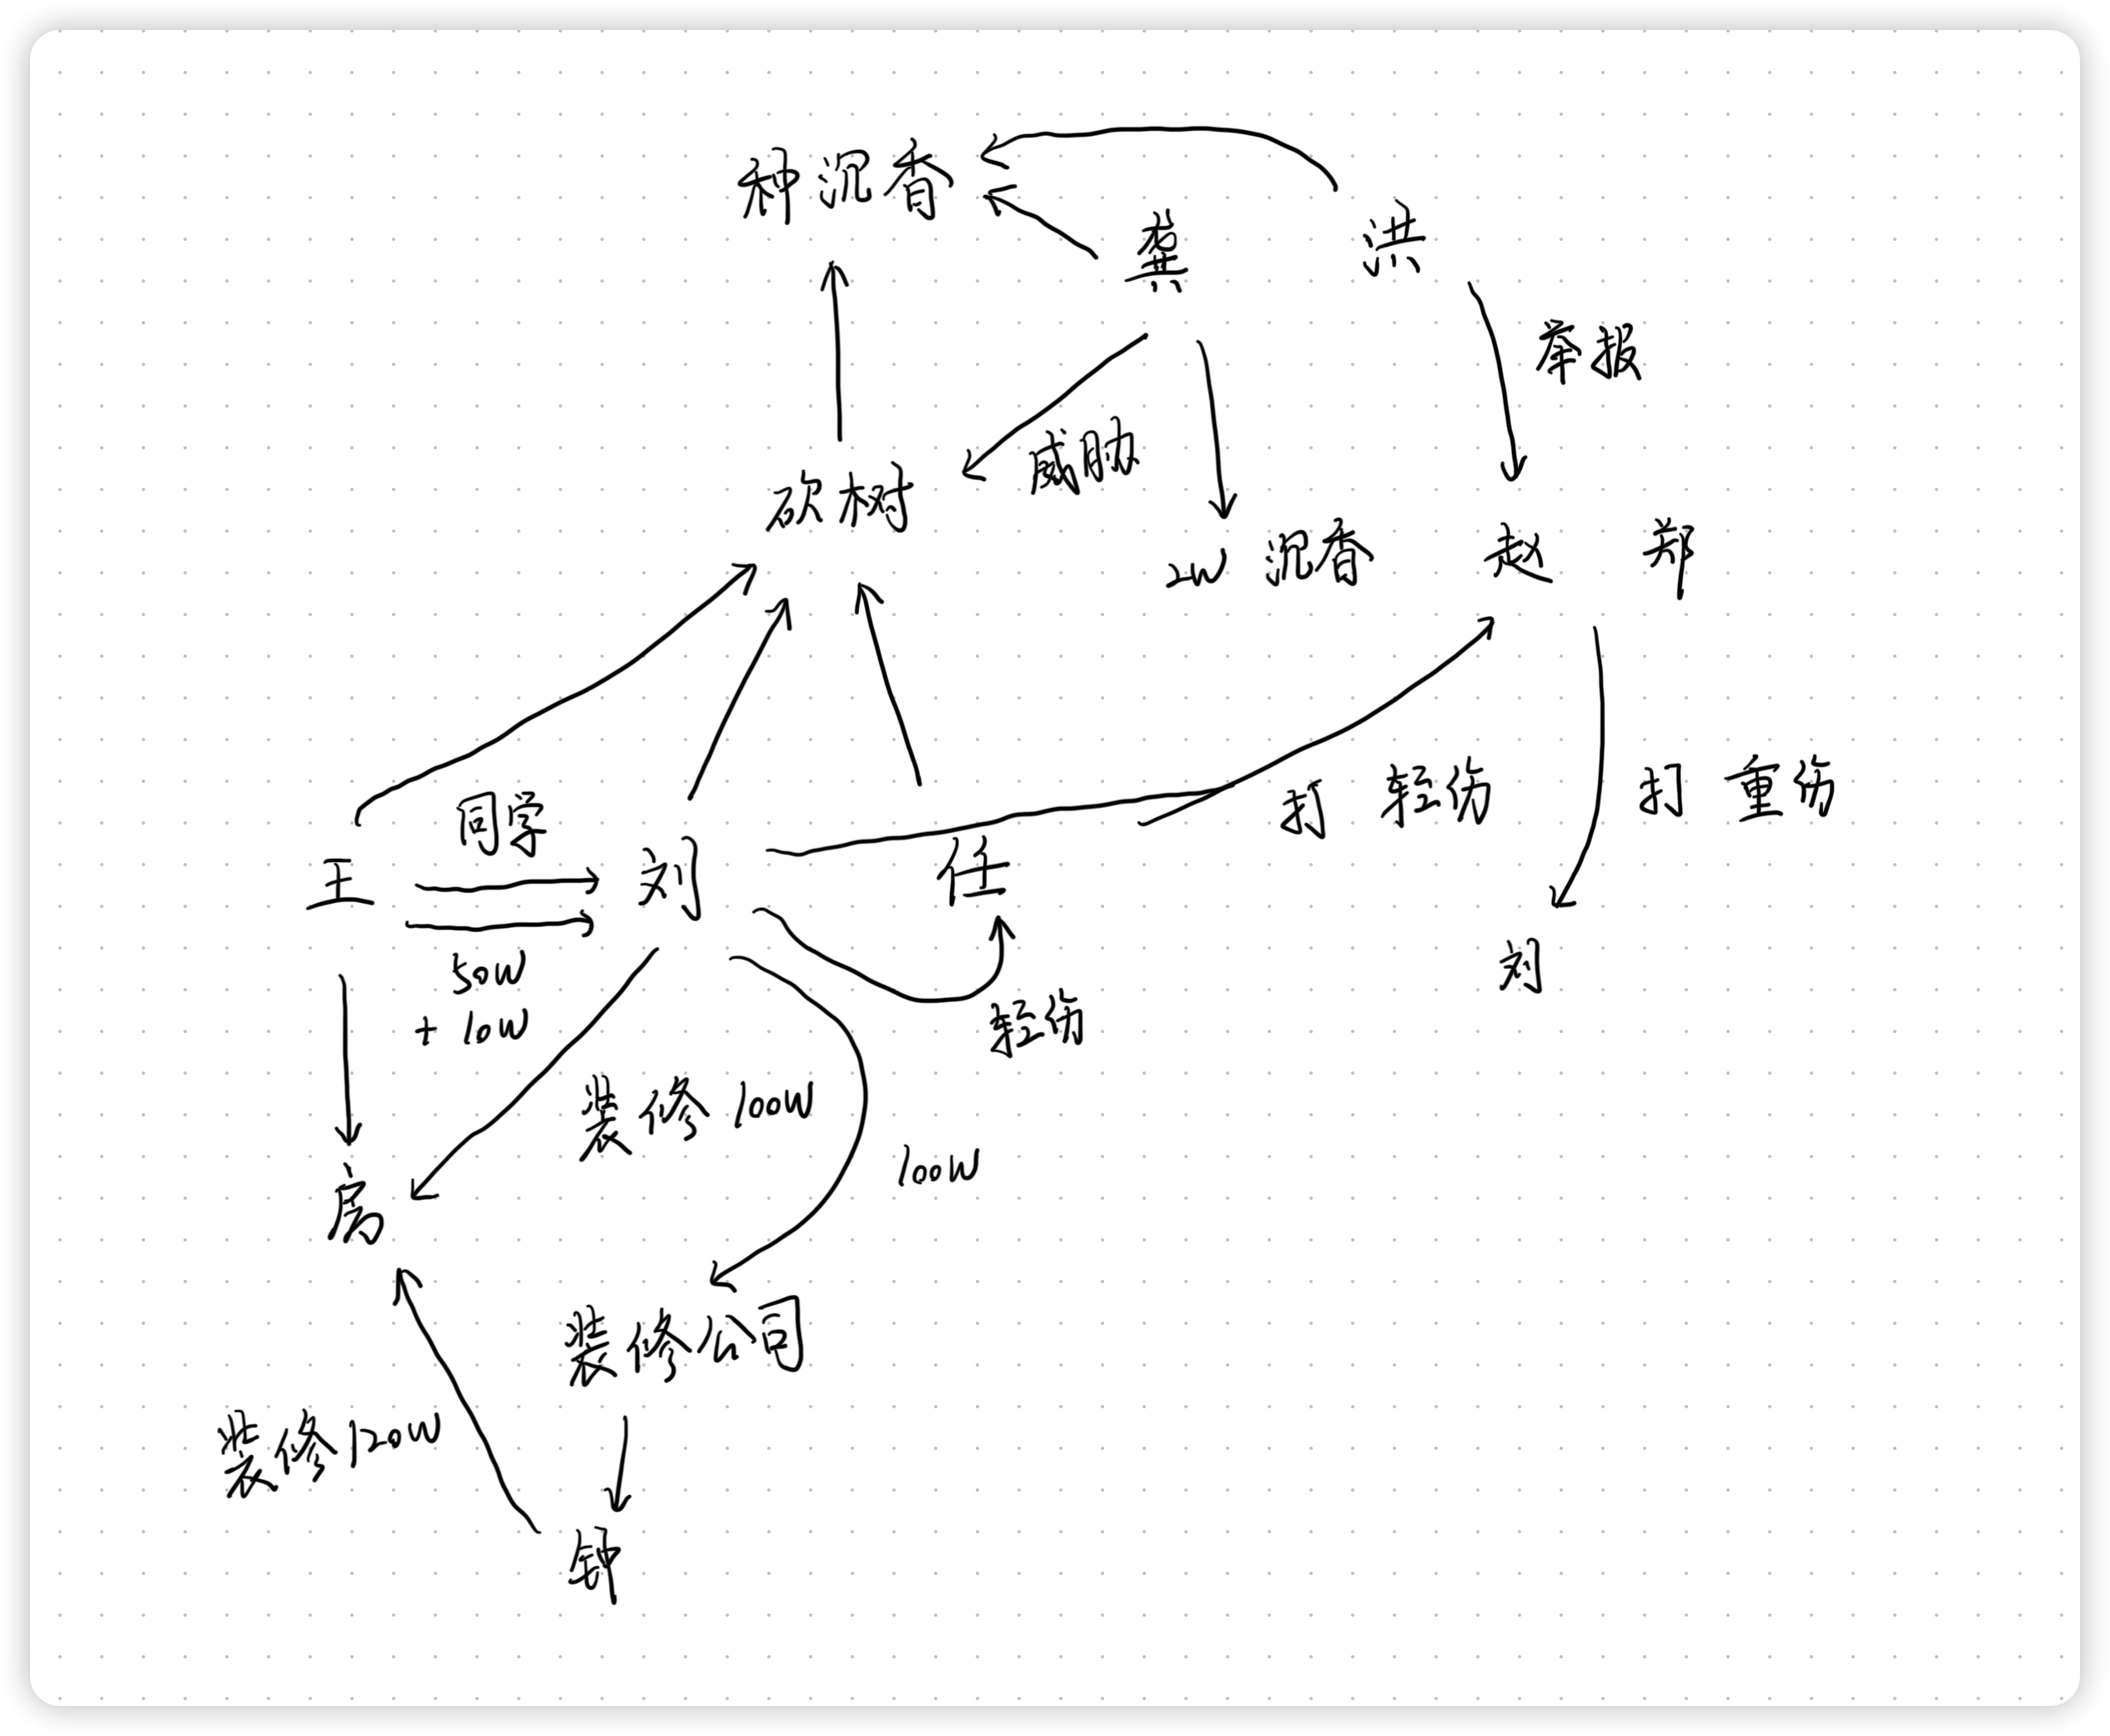 种沉香
龚
洪
举报
威胁
砍树
2W 沉香
赵
郑
同学
打 轻伤
打 重伤
王
刘
任
50W
+ 10W
刘
轻伤
装修 100W
100W
房
装修公司
装修 120W
钟